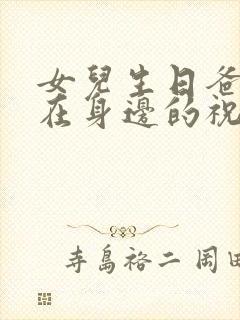 女兒生日爸
在身邊的祝
寺島裕二 岡田